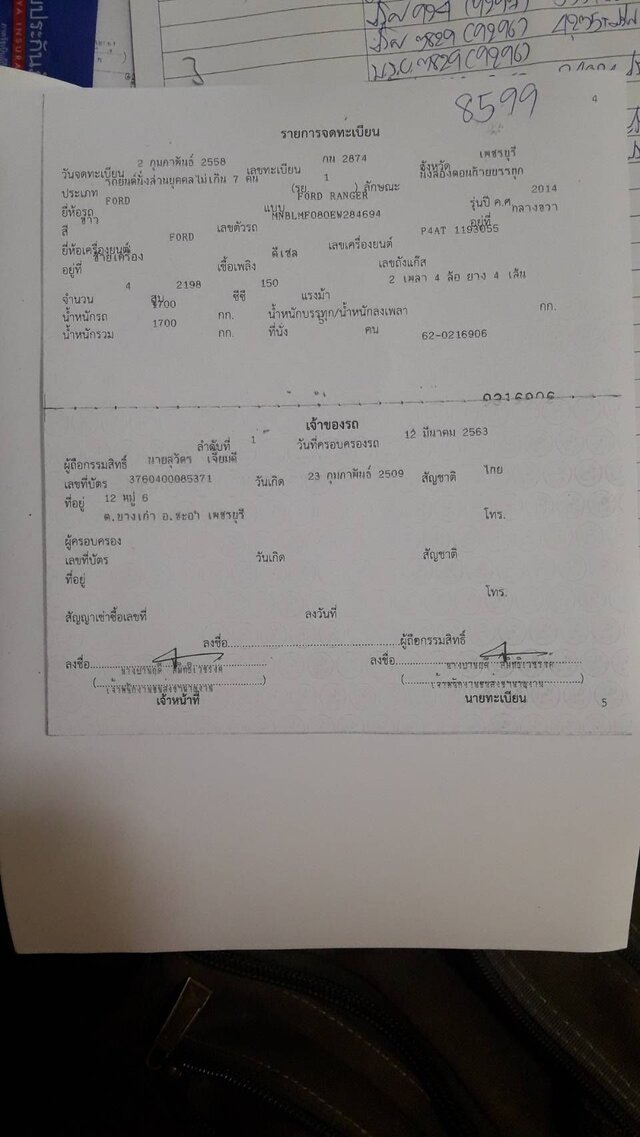 8599
4
รายการจดทะเบียน
วันจดทะเบียน 2 กุมภาพันธ์ 2558 เลขทะเบียน กน 2874 จังหวัด เพชรบุรี
ประเภท รถยนต์นั่งส่วนบุคคลไม่เกิน 7 คน (รย. 1 ) ลักษณะ นั่งสองตอนท้ายบรรทุก
ยี่ห้อรถ FORD แบบ FORD RANGER รุ่นปี ค.ศ. 2014
สี ขาว เลขตัวรถ MNBLMFO80EW284694 อยู่ที่ กลางขวา
ยี่ห้อเครื่องยนต์ FORD เลขเครื่องยนต์ P4AT 1193055
อยู่ที่ ซ้ายเครื่อง เชื้อเพลิง ดีเซล เลขถังแก๊ส
จำนวน 4 สูบ 2198 ซีซี 150 แรงม้า 2 เพลา 4 ล้อ ยาง 4 เส้น
น้ำหนักรถ 1700 กก. น้ำหนักบรรทุก/น้ำหนักลงเพลา กก.
น้ำหนักรวม 1700 กก. ที่นั่ง 5 คน 62-0216906
0216906
เจ้าของรถ
ลำดับที่ 1 วันที่ครอบครองรถ 12 มีนาคม 2563
ผู้ถือกรรมสิทธิ์ นายสุวัตร เจี้ยมดี
เลขที่บัตร 3760400085371 วันเกิด 23 กุมภาพันธ์ 2509 สัญชาติ ไทย
ที่อยู่ 12 หมู่ 6
ต.บางเก่า อ.ชะอำ เพชรบุรี โทร.
ผู้ครอบครอง
เลขที่บัตร วันเกิด สัญชาติ
ที่อยู่
โทร.
สัญญาเช่าซื้อเลขที่ ลงวันที่
ลงชื่อ ผู้ถือกรรมสิทธิ์
ลงชื่อ ลงชื่อ
เจ้าพนักงานขนส่งชำนาญงาน เจ้าพนักงานขนส่งชำนาญงาน
เจ้าหน้าที่ นายทะเบียน
5